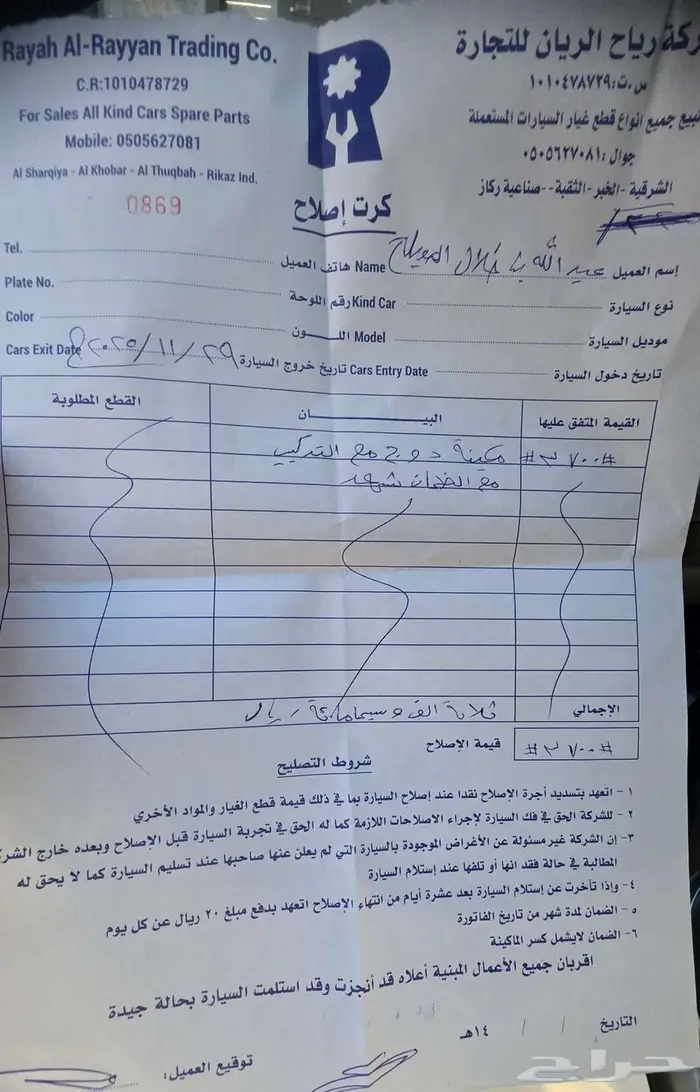 Rayah Al-Rayyan Trading Co.
C.R:1010478729
For Sales All Kind Cars Spare Parts
Mobile: 0505627081
Al Sharqiya - Al Khobar - Al Thuqbah - Rikaz Ind.
0869
كة رياح الريان للتجارة
س.ت: ١٠١٠٤٧٨٧٢٩
بيع جميع انواع قطع غيار السيارات المستعملة
جوال: ٠٥٠٥٦٢٧٠٨١
الشرقية -الخبر -الثقبة --صناعية ركاز
كرت إصلاح
إسم العميل عبد الله Name هاتف العميل Tel.
نوع السيارة Kind Car رقم اللوحة Plate No.
موديل السيارة Model اللـــون Color
تاريخ دخول السيارة Cars Entry Date تاريخ خروج السيارة ٢٠٢٥/١١/٢٩ Cars Exit Date
القيمة المتفق عليها البيـــــــان القطع المطلوبة
#٣٧٠٠# مكينة دوج مع التركيب
مع الضمان شهر
الإجمالي ثلاثة الف و سبعمائة ريال
قيمة الإصلاح #٣٧٠٠#
شروط التصليح
١- اتعهد بتسديد أجرة الإصلاح نقدا عند إصلاح السيارة بما في ذلك قيمة قطع الغيار والمواد الأخري
٢- للشركة الحق في فك السيارة لإجراء الاصلاحات اللازمة كما له الحق في تجربة السيارة قبل الإصلاح وبعده خارج الشر
٣- إن الشركة غير مسئولة عن الأغراض الموجودة بالسيارة التي لم يعلن عنها صاحبها عند تسليم السيارة كما لا يحق له
المطالبة في حالة فقد انها أو تلفها عند إستلام السيارة
٤- وإذا تأخرت عن إستلام السيارة بعد عشرة أيام من انتهاء الإصلاح اتعهد بدفع مبلغ ٢٠ ريال عن كل يوم
٥- الضمان لمدة شهر من تاريخ الفاتورة
٦- الضمان لايشمل كسر الماكينة
اقربان جميع الأعمال المبنية أعلاه قد أنجزت وقد استلمت السيارة بحالة جيدة
التاريخ / / ١٤هـ
توقيع العميل:
حراج